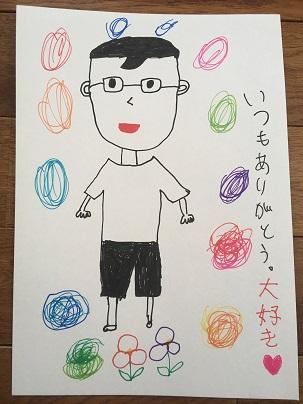 いつもありがとう。大好き♥